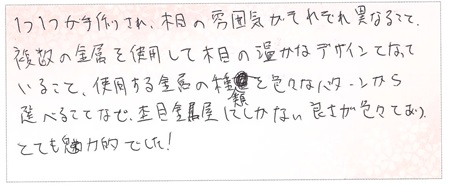 1つ1つが手作りされ、木目の雰囲気がそれぞれ異なること、
複数の金属を使用して木目の温かなデザインになって
いること、使用する金属の種類を色々なパターンから
選べることなど、杢目金屋にしかない良さが色々であり、
とても魅力的でした!